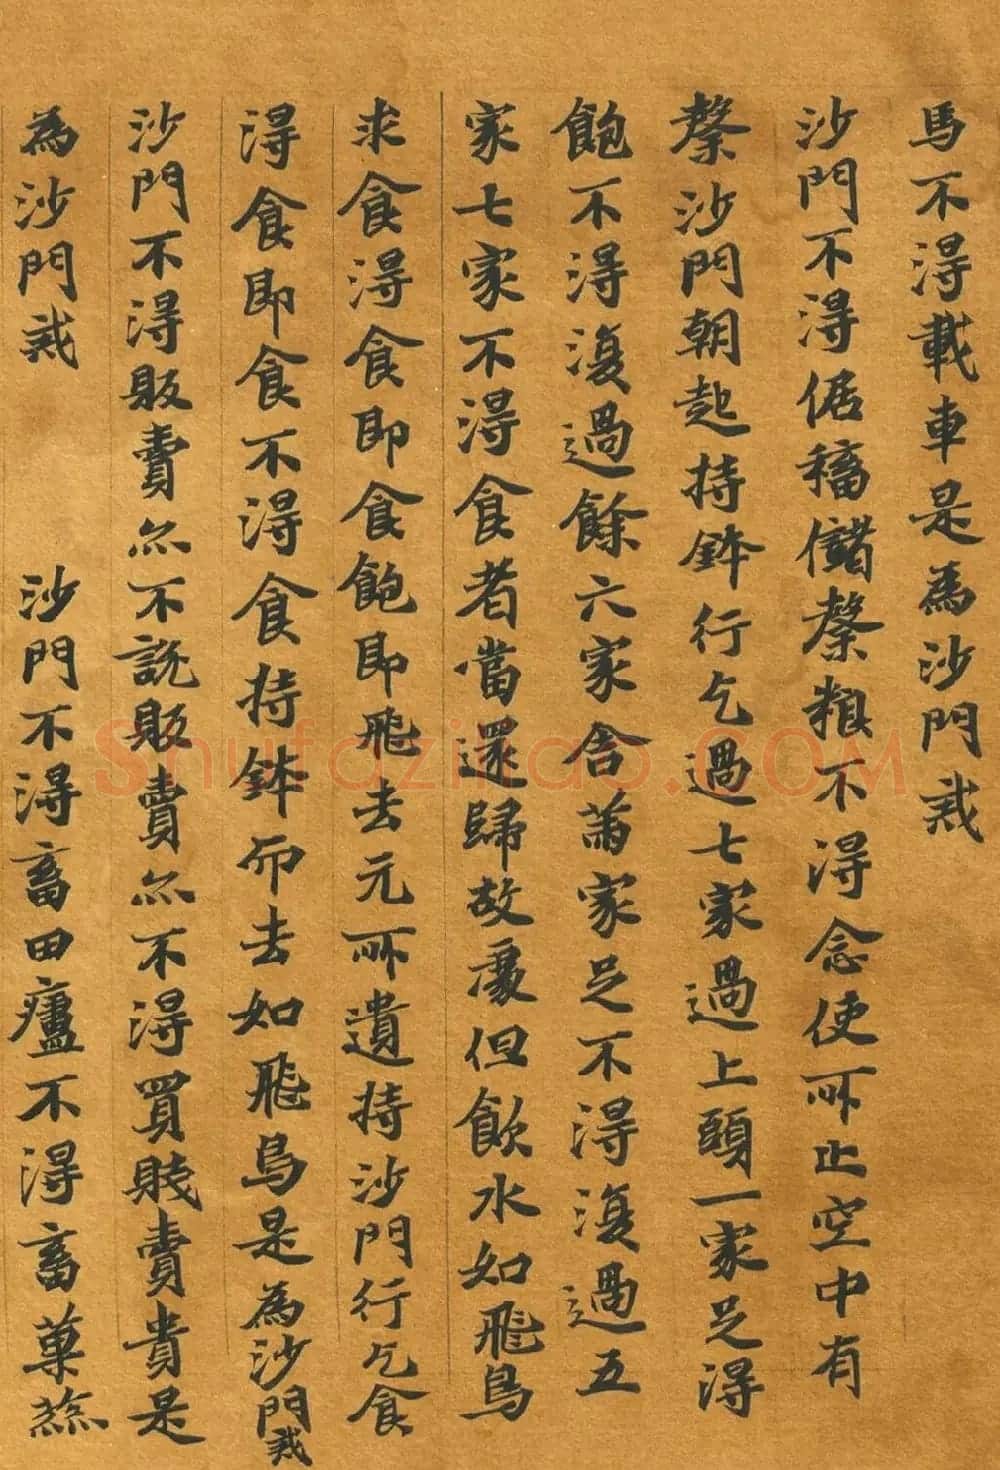 馬不得載車是為沙門戒
沙門不得倨穡儲嫠粮不得念使所止空中有
嫠沙門朝起持鉢行乞過七家過上頭一家足得
飽不得復過餘六家舍苐家足不得復過五
家七家不得食者當還歸故處但飲水如飛鳥
求食得食即食飽即飛去元所遺持沙門行乞食
得食即食不得食持鉢而去如飛鳥是為沙門戒
沙門不得販賣亦不說販賣亦不得買賤賣貴是
為沙門戒 沙門不得畜田廬不得畜菓蓏
Shufaziliao.COM